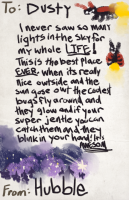 To: DUSTY
I never saw so many
lights in the Sky for
my whole LIFE!
This is the best place
EVER. when its really
nice outside and the
sun gose owt the coolest
bugs fly around, and
they glow and if your
super jentle you can
catch them and they
blink in your hand! Its
AWSOM
From: Hubble